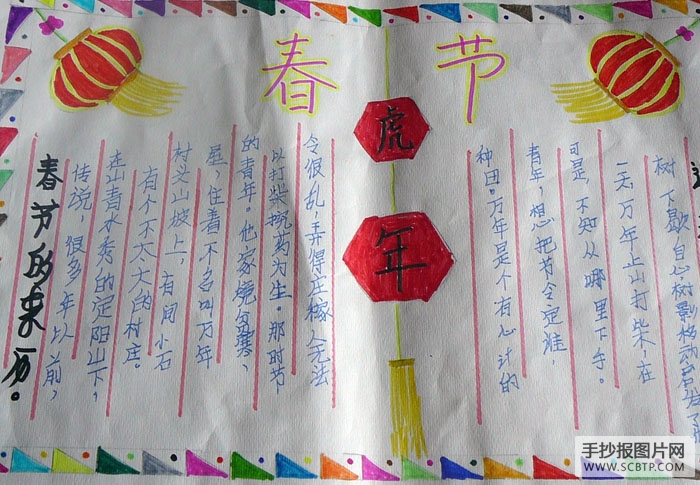 春节
虎年
春节的来历。
传说，很多年以前，
在山青水秀的定阳山下，
有个不太大的村庄。
村头山坡上，有间小石
屋，住着个名叫万年
的青年。他家境贫寒、
以打柴挖药为生。那时节
令很乱，弄得庄稼人无法
种田。万年是个有心计的
青年，想把节令定准，
可是，不知从哪里下手。
一天，万年上山打柴，在
树下歇息树影移动启发了
手抄报图片网
WWW.SCBTP.COM